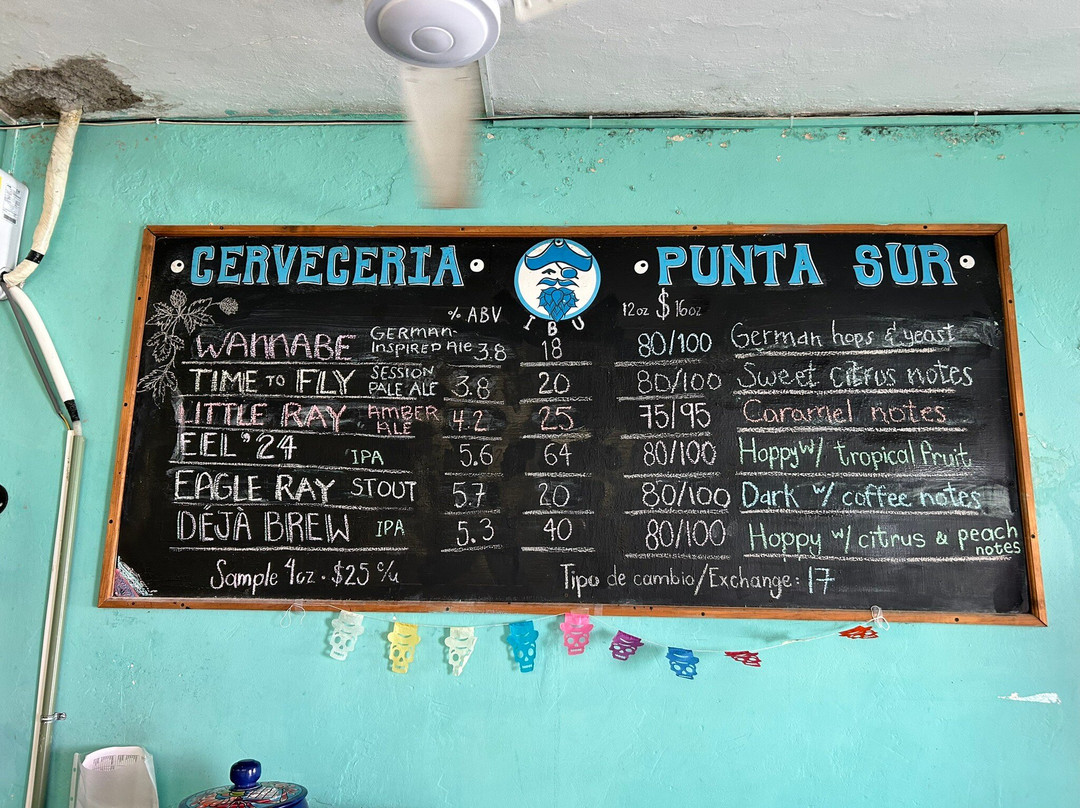 CERVECERIA PUNTA SUR
% ABV IBU 12oz $ 16oz
WANNABE GERMAN-INSPIRED Ale 3.8 18 80/100 German hops & yeast
TIME TO FLY SESSION PALE ALE 3.8 20 80/100 Sweet citrus notes
LITTLE RAY AMBER ALE 4.2 25 75/95 Caramel notes
EEL '24 IPA 5.6 64 80/100 Hoppy w/ tropical fruit
EAGLE RAY STOUT 5.7 20 80/100 Dark w/ coffee notes
DÉJÀ BREW IPA 5.3 40 80/100 Hoppy w/ citrus & peach notes
Sample 4oz · $25 c/u Tipo de cambio/Exchange: 17